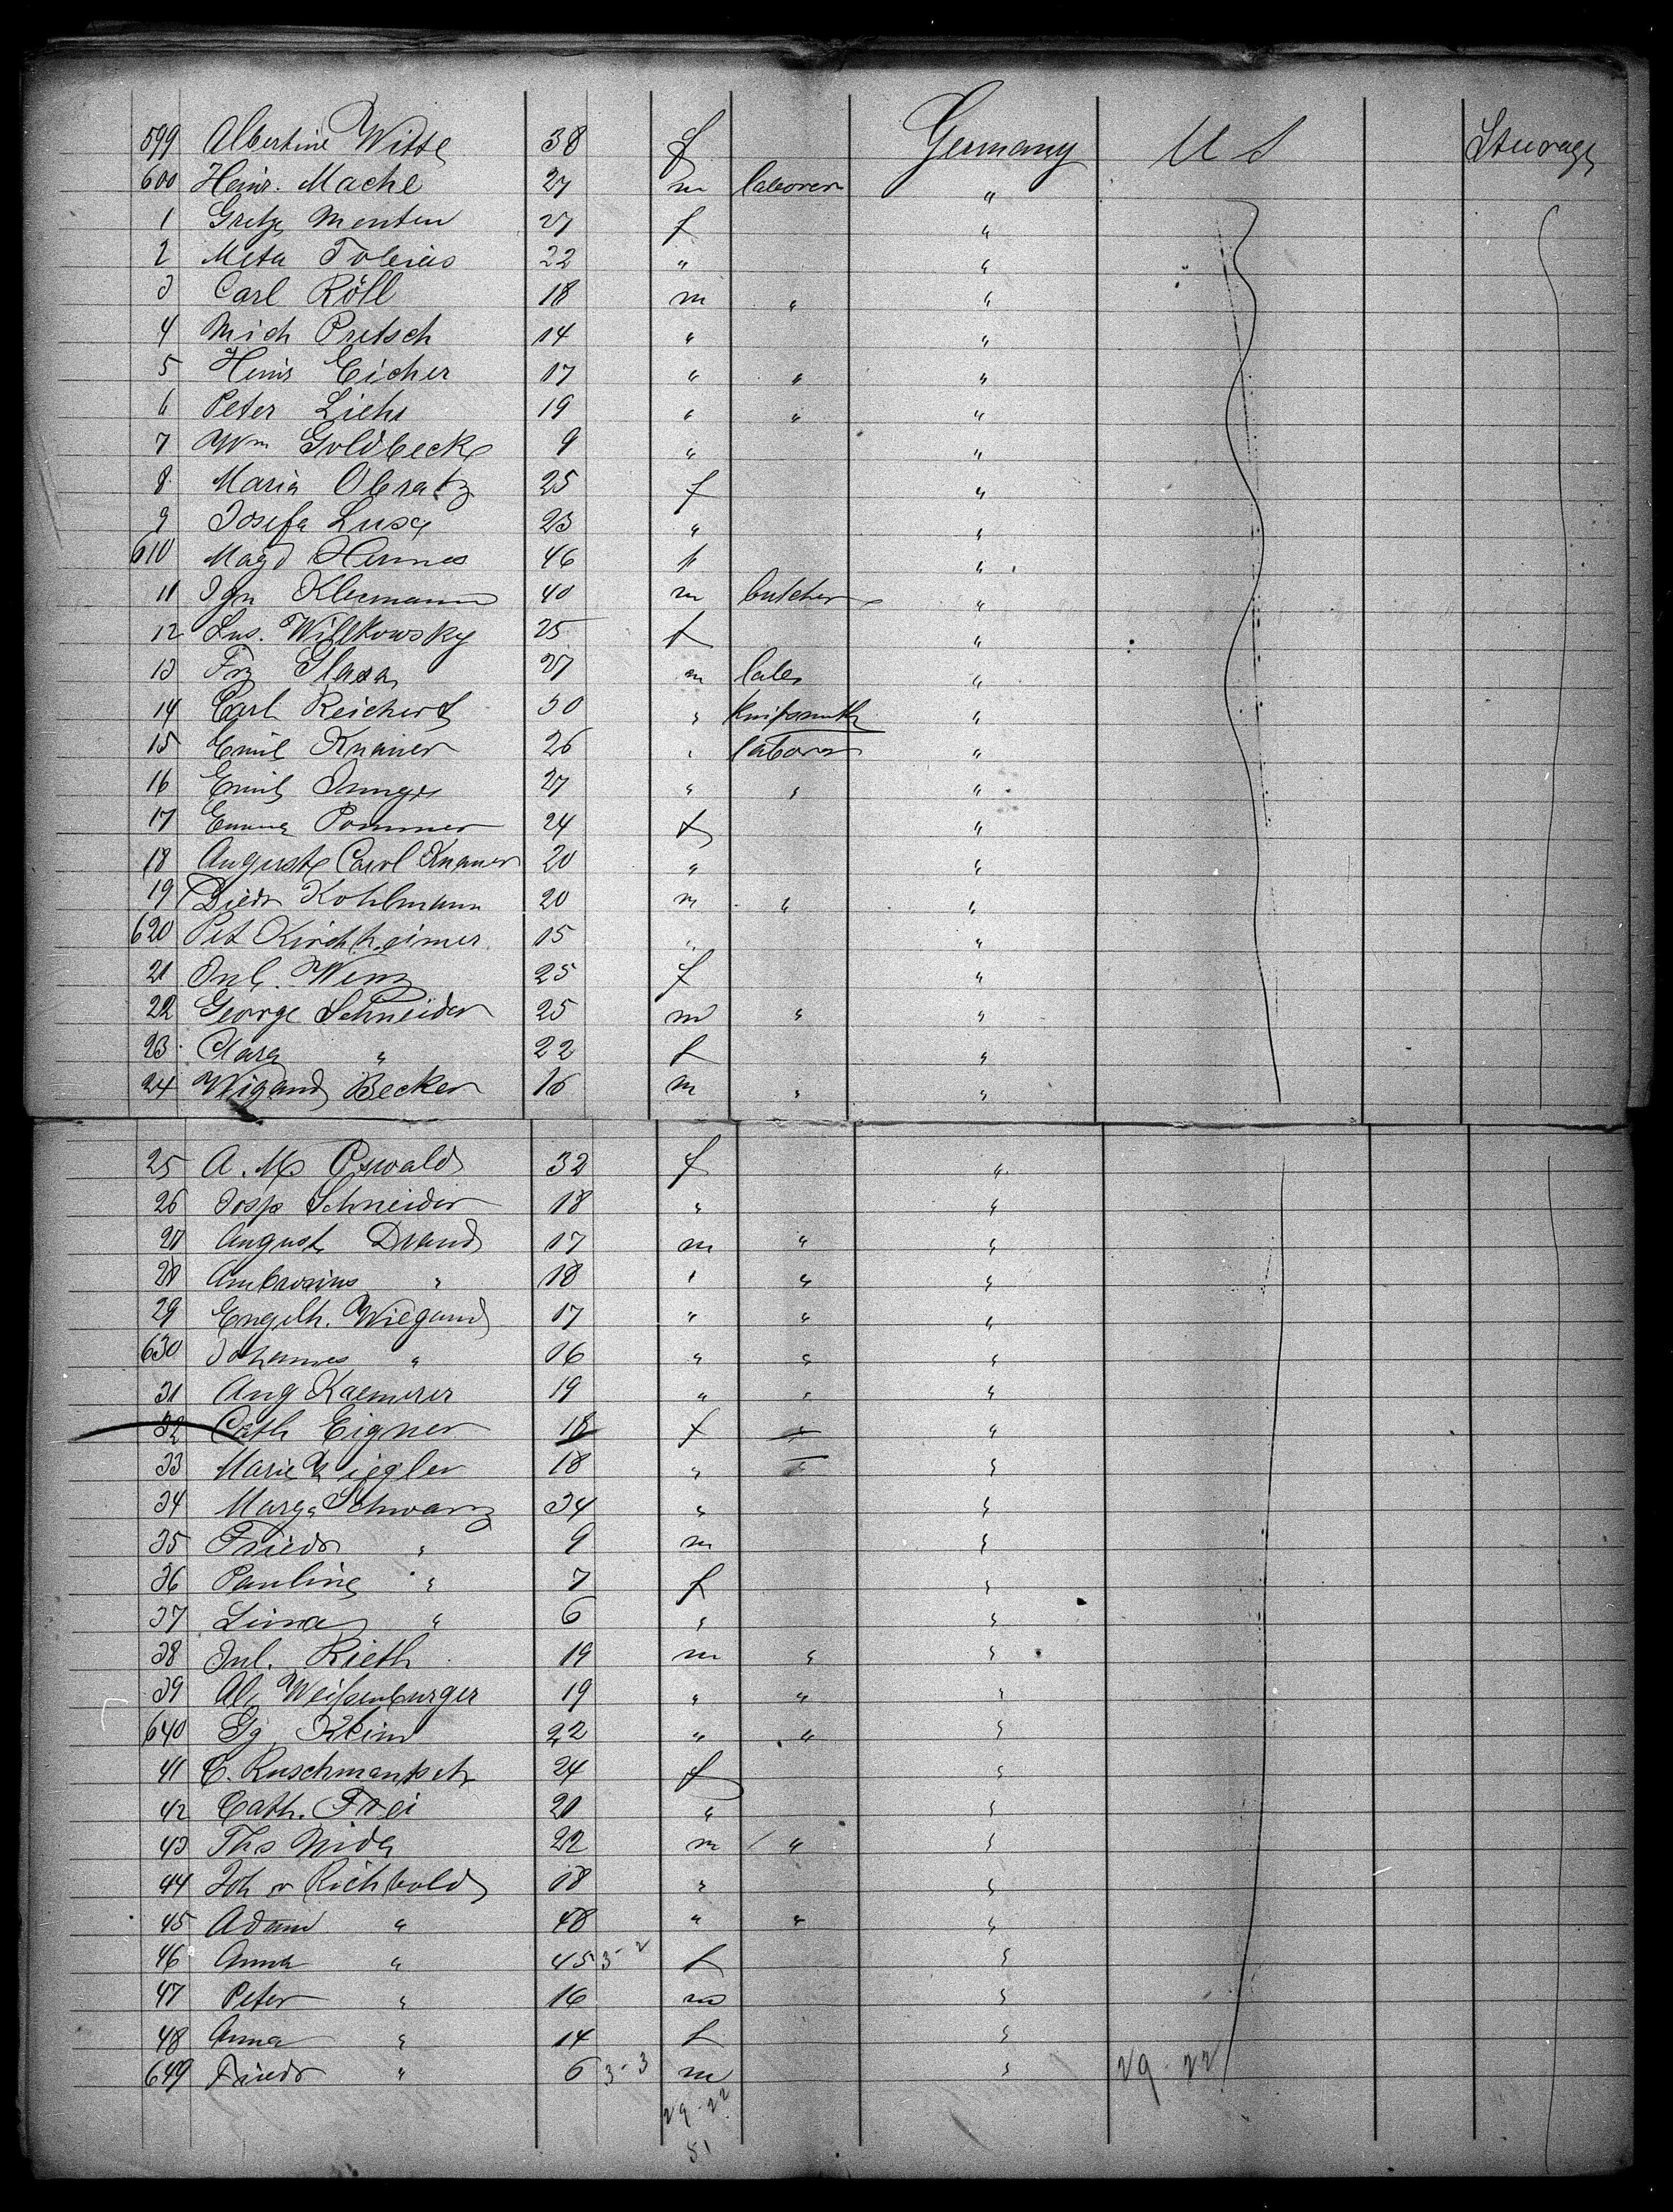 599 Albertine Witte 38 f Germany U S Steerage
600 Heinr. Mache 27 m laborer "
1 Grete Menten 27 f "
2 Meta Tobias 22 " "
3 Carl Röll 18 m " "
4 Mich Pretsch 14 " "
5 Heinr Eicher 17 " " "
6 Peter Liehs 19 " " "
7 Wm Goldbeck 9 " "
8 Maria Obratz 25 f "
9 Josefa 23 " "
610 Magd Hermes 46 f "
11 Ign Kleemann 40 m butcher "
12 Lus. Willkowsky 25 f "
13 Frz 27 m labr "
14 Carl Reichert 30 " knifesmith "
15 Emil Knauer 26 " laborer "
16 Emil Junger 27 " " "
17 Emma Pommer 24 f "
18 Auguste Carol Knauer 20 " "
19 Diedr Kohlmann 20 m " "
620 Pet Kirchheimer 15 " "
21 Jul. Wenz 25 f "
22 George Schneider 25 m " "
23 Clara " 22 f "
24 Wigand Becker 16 m " "
25 A. M. Oswald 32 f "
26 Josp Schneider 18 " "
27 August Drand 17 m " "
28 Ambrosius " 18 " " "
29 Engelh. Wiegand 17 " " "
630 Johannes " 16 " " "
31 Aug Kaemerer 19 " " "
32 Cath Eigner 18 f " "
33 Marie Ziegler 18 " "
34 Marg. Schwarz 34 " "
35 Friedr " 9 m "
36 Pauline " 7 f "
37 Lina " 6 " "
38 Jul. Rieth 19 m " "
39 Al. Weißenburger 19 " " "
640 Gg. Klein 22 " " "
41 C. 24 f "
42 Cath. Frei 21 " "
43 Ths Nida 22 m " "
44 Joh Richbold 18 " "
45 Adam " 48 " " "
46 Anna " 45 3-2 f "
47 Peter " 16 m "
48 Anna " 14 f "
649 Friedr " 6 3-3 m " 29-22
29-22
51